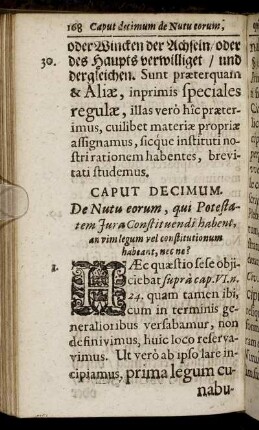 168 Caput decimum de Nutu eorum,
oder Wincken der Achseln/oder
30. des Haupts verwilliget / und
dergleichen. Sunt præterquam
& Aliæ, inprimis speciales
regulæ, illas verò hîc præter-
imus, cuilibet materiæ propriæ
assignamus, sicque instituti no-
stri rationem habentes, brevi-
tati studemus.
CAPUT DECIMUM.
De Nutu eorum, qui Potesta-
tem Jura Constituendi habent,
an vim legum vel constitutionum
habeant, nec ne?
1. HÆc quæstio sese obji-
ciebat suprà cap. VI. n.
24. quam tamen ibi,
cum in terminis ge-
neralioribus versabamur, non
definivimus, huic loco reserva-
vimus. Ut verò ab ipso lare in-
cipiamus, prima legum cu-
nabu-